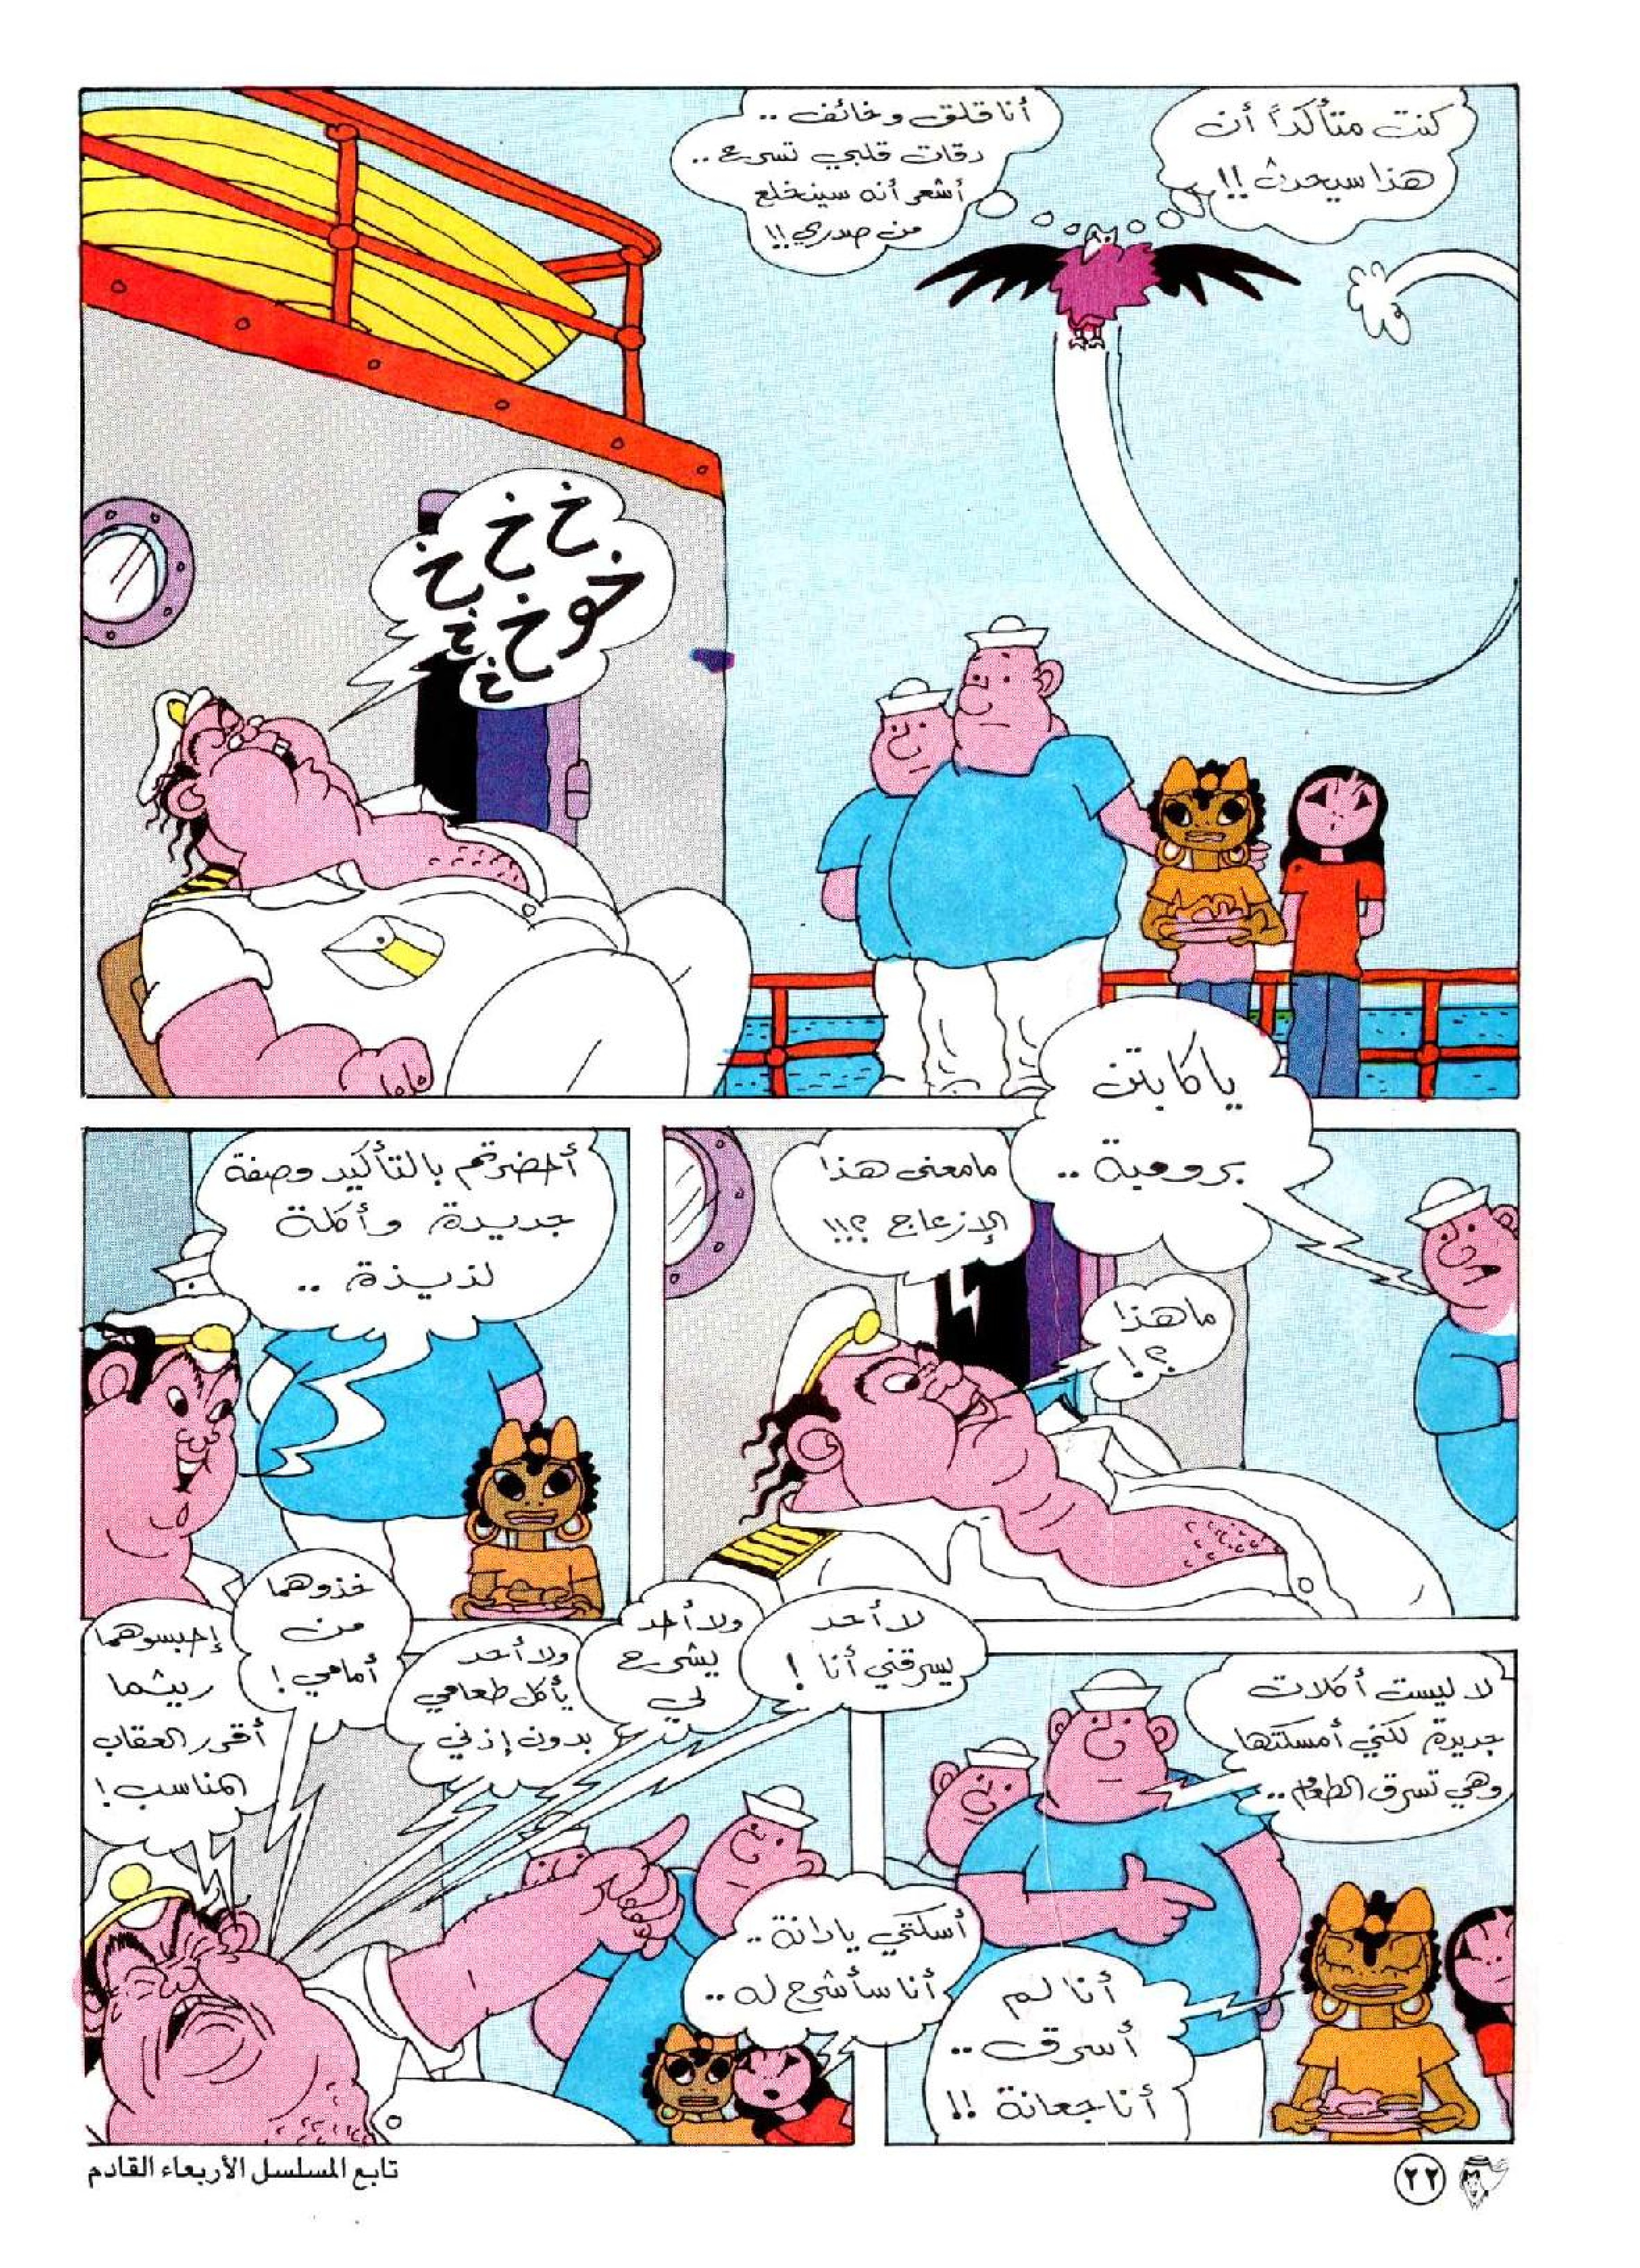 كنت متأكداً أن
هذا سيحدث !!
أنا قلق و خائف ..
دقات قلبي تسرع ..
أشعر أنه سينخلع
من صدري !!
خ خ خ
خوخ خ
خ
يا كابتن
برومية ..
ما معنى هذا
الإزعاج ؟!!
ما هذا
؟!
أحضرتم بالتأكيد وصفة
جديدة وأكلة
لذيذة ..
لا ليست أكلات
جديدة لكني أمسكتها
وهي تسرق الطعام ..
أنا لم
أسرق ..
أنا جعانة !!
لا أحد
يسرقني أنا !
ولا أحد
يشرح
لي
ولا أحد
يأكل طعامي
بدون إذني
خذوهما
من
أمامي !
إحبسوهما
ريثما
أقرر العقاب
المناسب !
أسكتي يا دانة ..
أنا سأشرح له ..
٢٢
تابع المسلسل الأربعاء القادم